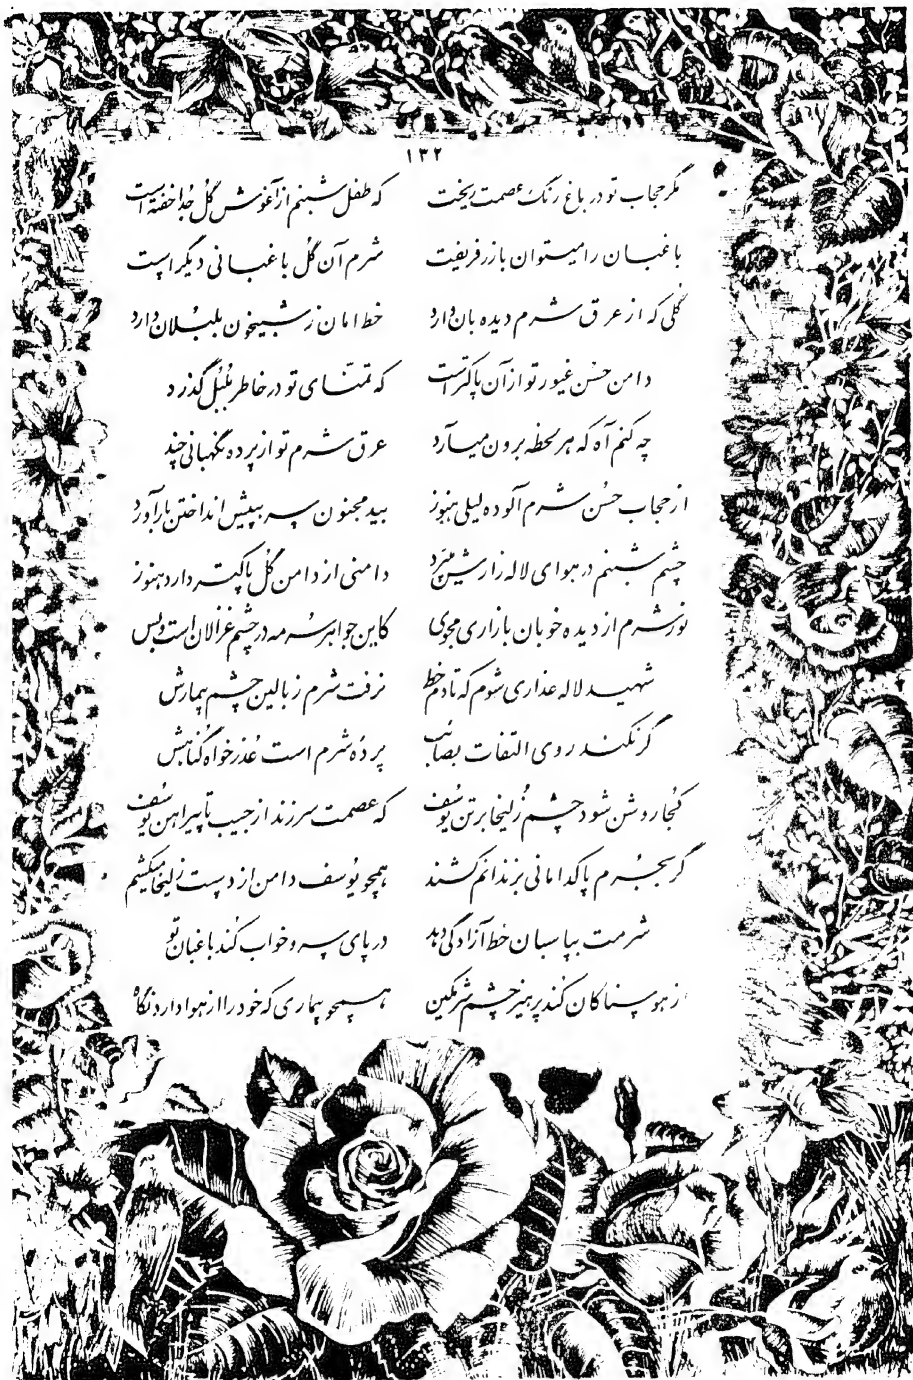 ۱۳۲
مگر حجاب تو در باغ رنگ عصمت ریخت که طفل شبنم از آغوش گل جدا خفته است
باغبان را میتوان با زر فریفت شرم آن گل باغبانی دیگر است
گلی که از عرق شرم دیده بان دارد خط امان ز شبیخون بلبلان دارد
دامن حسن غیور تو از آن پاکتر است که تمنّای تو در خاطر بلبل گذرد
چه کنم آه که هر لحظه برون میآرد عرق شرم تو از پرده نگهبانی چند
از حجاب حسن شرم آلوده لیلی هنوز بید مجنون سر بپیش انداختن بار آورد
چشم شبنم در هوای لاله زارش میپرد دامنی از دامن گل پاکیتر دارد هنوز
نور شرم از دیده خوبان بازاری مجوی کاین جواهر سرمه در چشم غزالان است و بس
شهید لاله عذاری شوم که تا دم خط نرفت شرم ز بالین چشم بیمارش
گر نکند روی التفات بصائب پردهٔ شرم است عُذر خواه گناهش
کجا روشن شود چشم زلیخا بر تن یوسف که عصمت سر زند از جیب تا پیراهن یوسف
گر بجرم پاکدامانی بزندانم کشند همچو یوسف دامن از دست زلیخا میکشم
شرمت بپاسبان خط آزادگی دهد در پای سرو خواب کند باغبان تو
از هوسناکان کند پرهیز چشم شرمگین همچو بیماری که خود را از هوا دارد نگاه